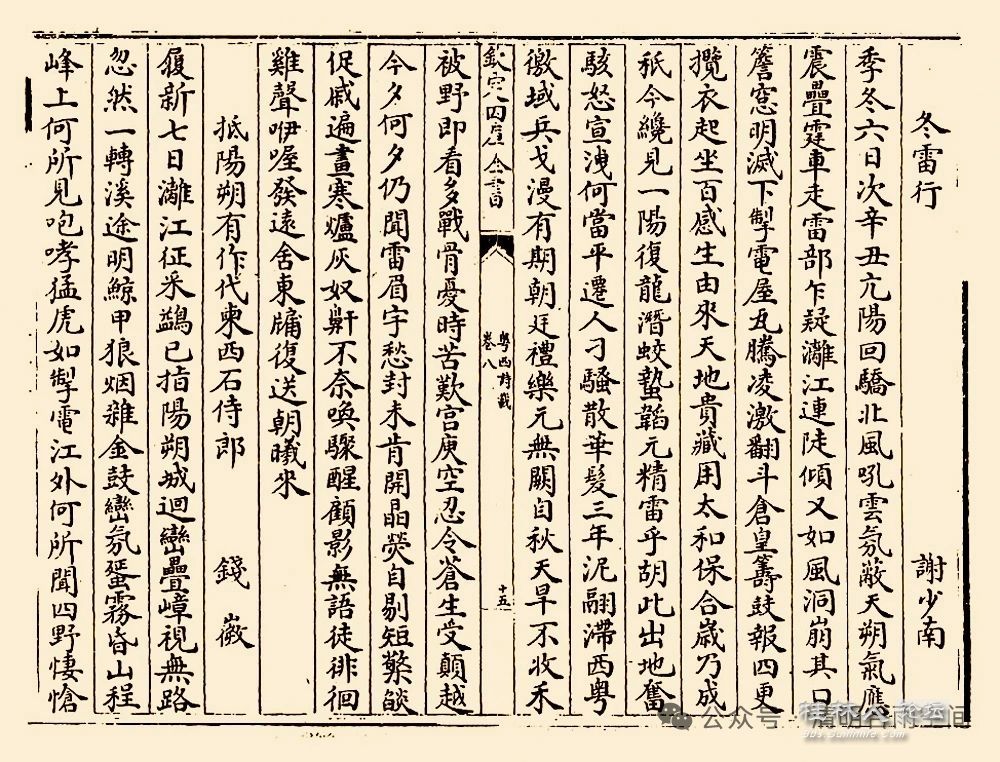 冬雷行　謝少南
季冬六日次辛丑亢陽回驕北風吼雲氛蔽天朔氣應
震疊霆車走雷部乍疑灕江連陡傾又如風洞崩其口
簷窓明滅下掣電屋瓦騰凌激翻斗倉皇籌鼓報四更
攬衣起坐百感生由來天地貴藏用太和保合歲乃成
秖今纔見一陽復龍潛蛟蟄韜元精雷乎胡此出地奮
駭怒宣洩何當平遷人刁騷散華髮三年泥翮滯西粤
徼域兵戈漫有期朝廷禮樂元無闕自秋天旱不收禾
欽定四庫全書　粤西詩載　卷八　十五
被野即看多戰骨憂時苦歎宫庾空忍令蒼生受顛越
今夕何夕仍聞雷眉宇愁封未肯開晶熒自剔短檠燄
促戚遍畫寒爐灰奴鼾不奈喚驟醒顧影無語徒徘徊
雞聲咿喔發遠舍東牖復送朝曦來
抵陽朔有作代柬西石侍郎　錢薇
履新七日灕江征采鷁已指陽朔城迴巒疊嶂視無路
忽然一轉溪途明鯨甲狼烟雜金鼓巒氛蜑霧昏山程
峰上何所見咆哮猛虎如掣電江外何所聞四野悽愴
公众号